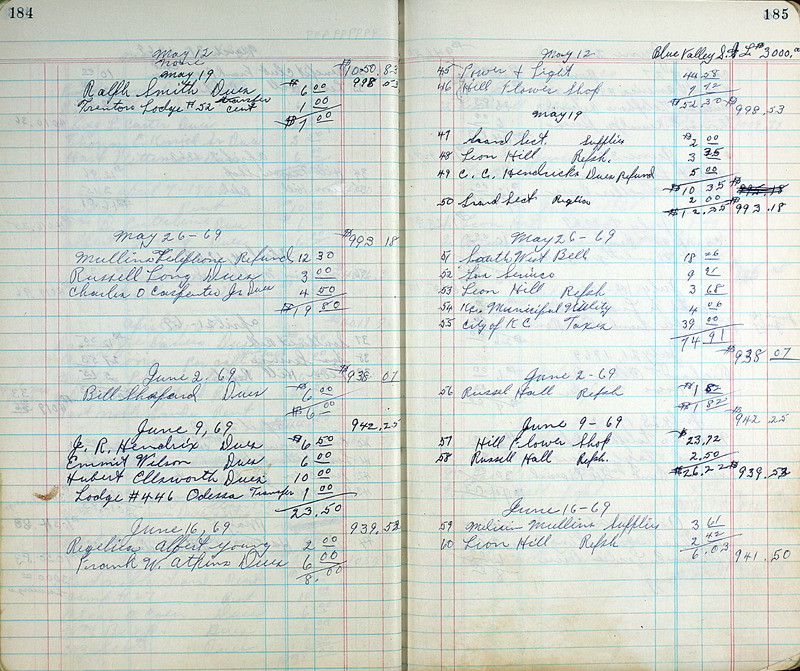 184
May 12
None
$1050.83
May 19
998 53
Ralph Smith Dues $ 6 00
Trenton Lodge #52 transfer cert 1 00
$ 7 00
May 26-69
$ 993 18
Mullins Telephone Refund 12 30
Russell Long Dues 3 00
Charles O Carpenter Jr Dues 4 50
$ 19 80
June 2-69
$ 938 07
Bill Shepard Dues $ 6 00
$ 6 00
June 9, 69
942.25
J. R. Hendrix Dues $ 6 50
Emmit Wilson Dues 6 00
Hubert Ellsworth Dues 10 00
Lodge #446 Odessa Transfer 1 00
23.50
June 16, 69
939.53
Regelies Albert Young 2 00
Frank W. Atkins Dues 6 00
8.00
185
May 12
Blue Valley S. & L $ 3000.00
45 Power & Light 44 58
46 Hill Flower Shop 7 72
$ 52 30 $ 998.53
May 19
47 Grand Sect. Supplies $ 2 00
48 Leon Hill Refsh. 3 35
49 C. C. Hendricks Dues Refund 5 00
$ 10 35
50 Grand Sect Regelies 2 00
$ 12.35 $ 993.18
May 26-69
51 South West Bell 18 26
52 9 91
53 Leon Hill Refsh 3 68
54 K.C. Municipal Utility 4 06
55 City of K C Taxes 39 00
74 91
$ 938 07
June 2-69
56 Russel Hall Refsh $ 1 82
$ 1 82
942 25
June 9-69
57 Hill Flower Shop $ 23.72
58 Russell Hall Refsh. 2.50
$ 26.22 $ 939.53
June 16-69
59 Mullins Supplies 3 61
60 Leon Hill Refsh 2 42
6.03
941.50